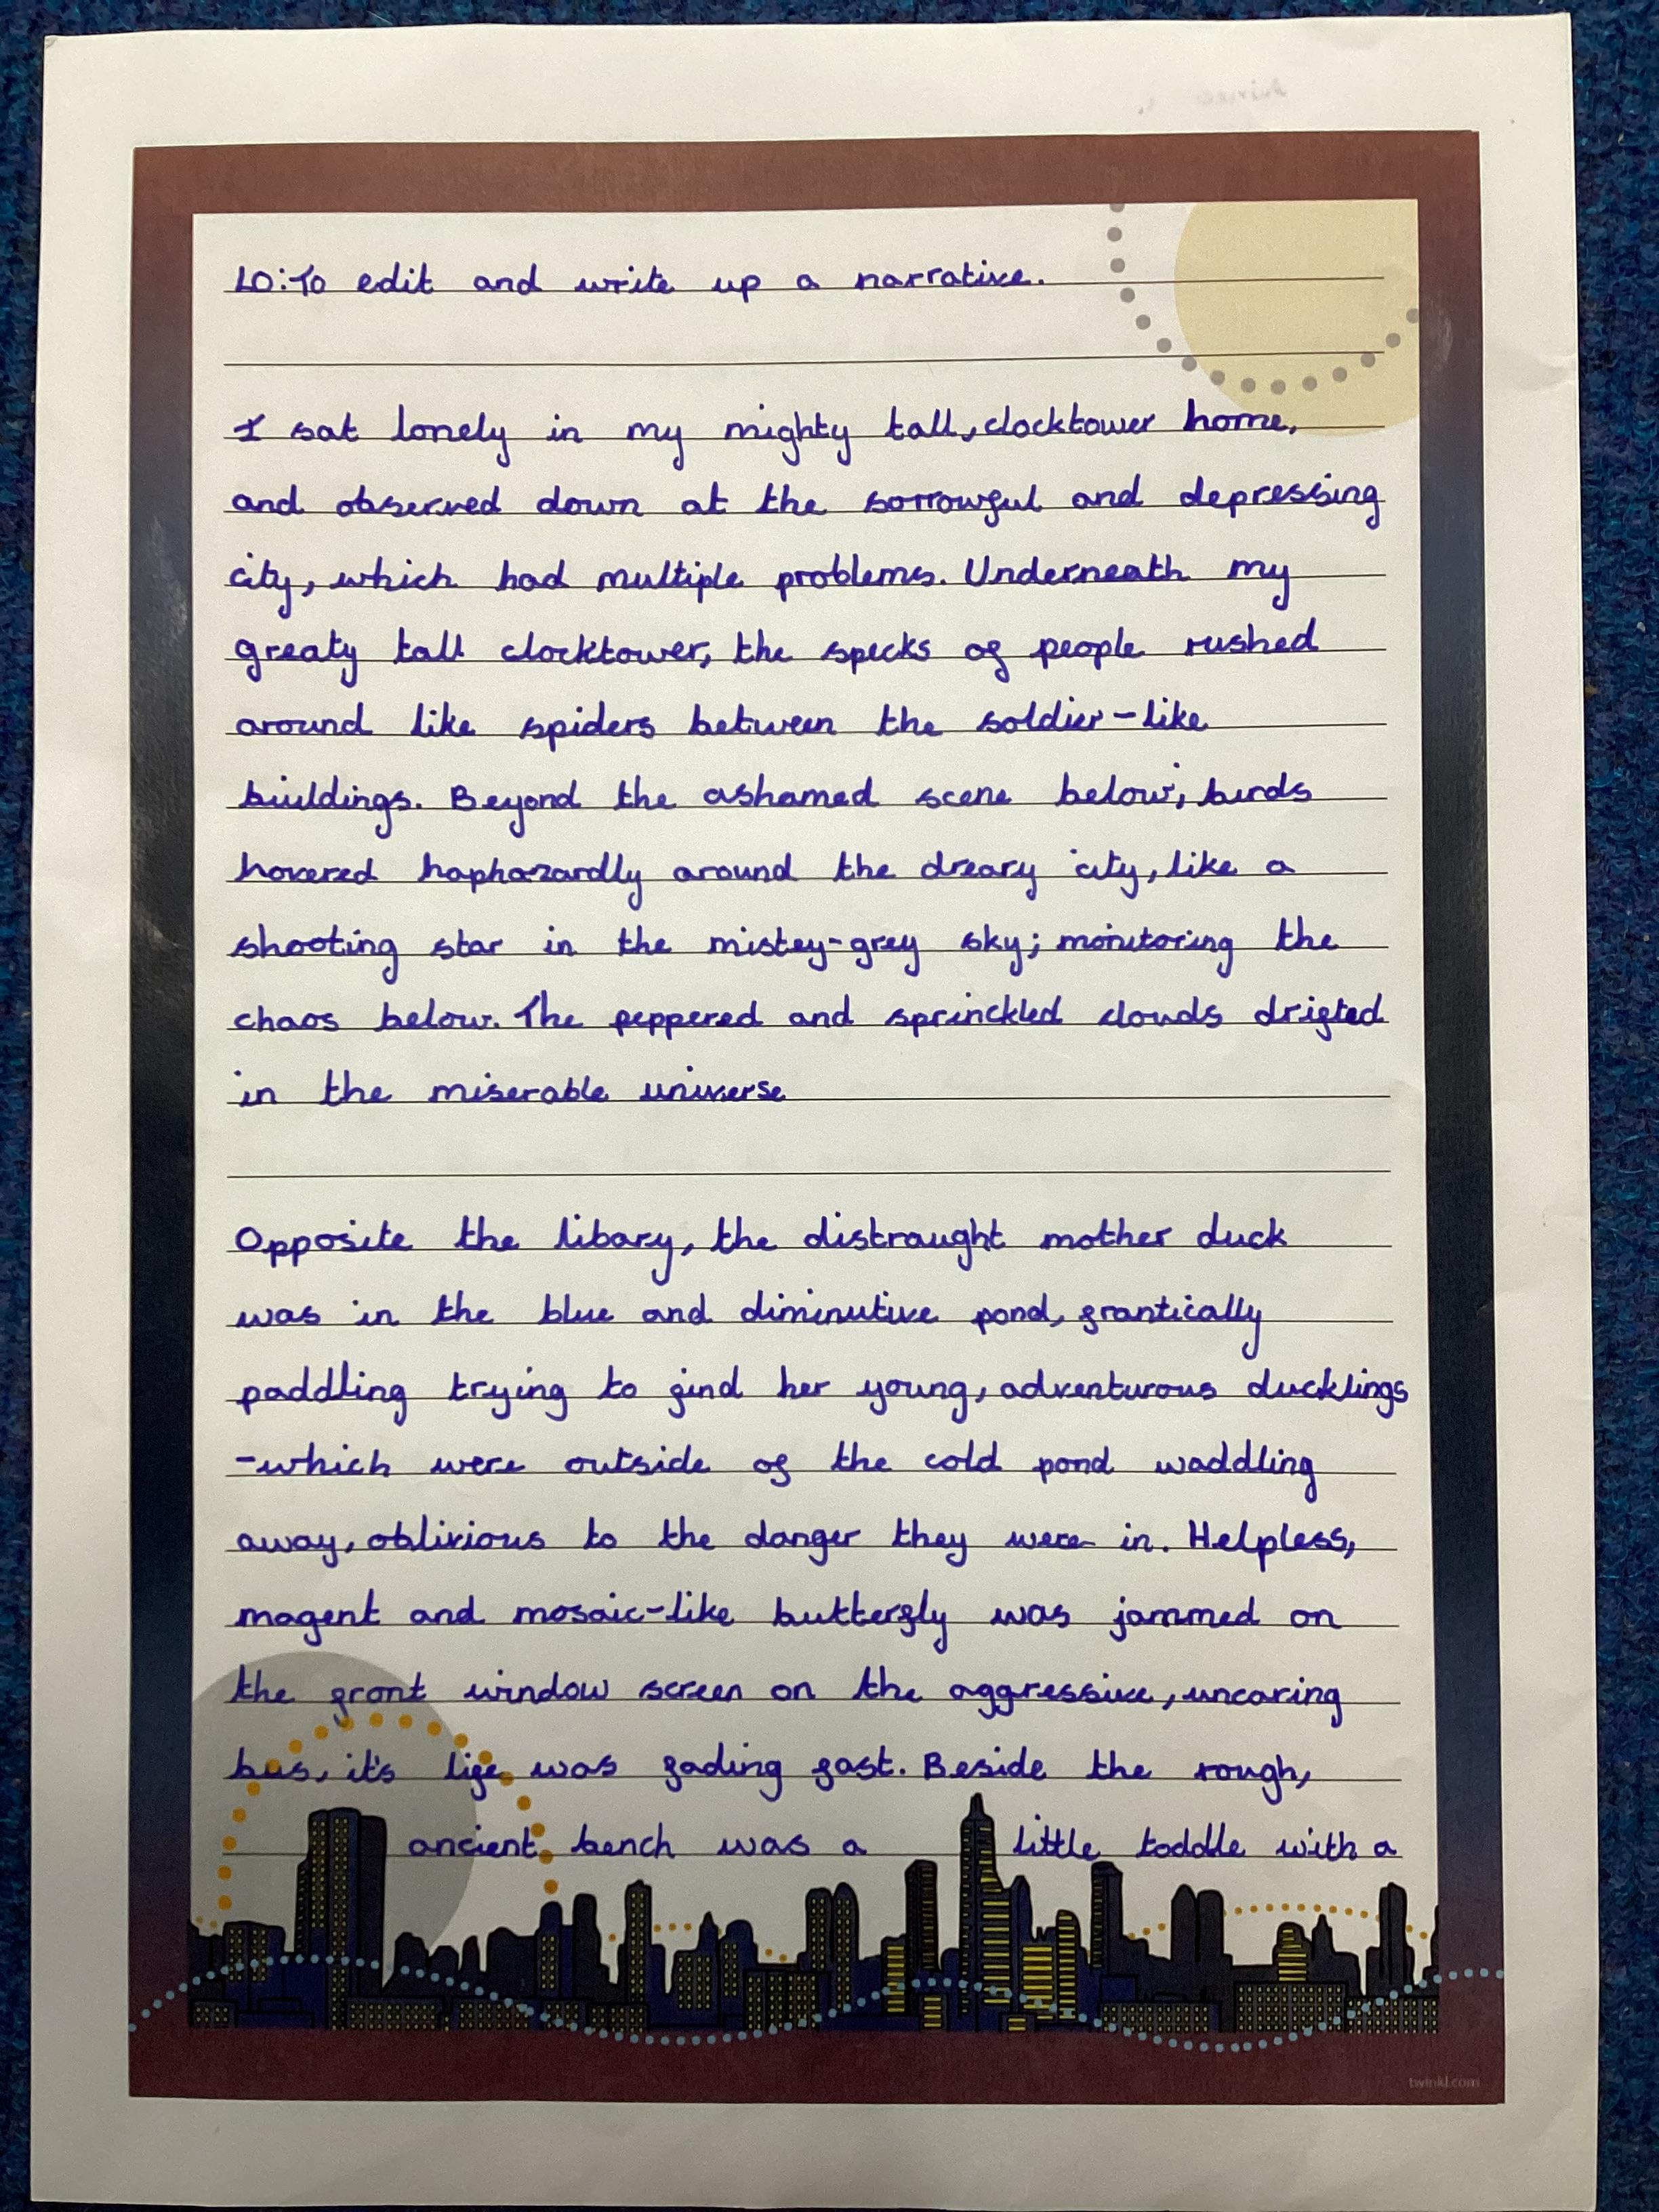 LO: To edit and write up a narrative.
I sat lonely in my mighty tall, clocktower home,
and observed down at the sorrowful and depressing
city, which had multiple problems. Underneath my
greaty tall clocktower, the specks of people rushed
around like spiders between the soldier-like
buildings. Beyond the ashamed scene below, birds
hovered haphazardly around the dreary city, like a
shooting star in the mistey-grey sky; monitoring the
chaos below. The peppered and sprinckled clouds drifted
in the miserable universe
Opposite the libary, the distraught mother duck
was in the blue and diminutive pond, frantically
paddling trying to find her young, adventurous ducklings
-which were outside of the cold pond waddling
away, oblivious to the danger they were in. Helpless,
magent and mosaic-like butterfly was jammed on
the front window screen on the aggressive, uncaring
bus, it's life was fading fast. Beside the rough,
ancient bench was a little toddle with a
twinkl.com